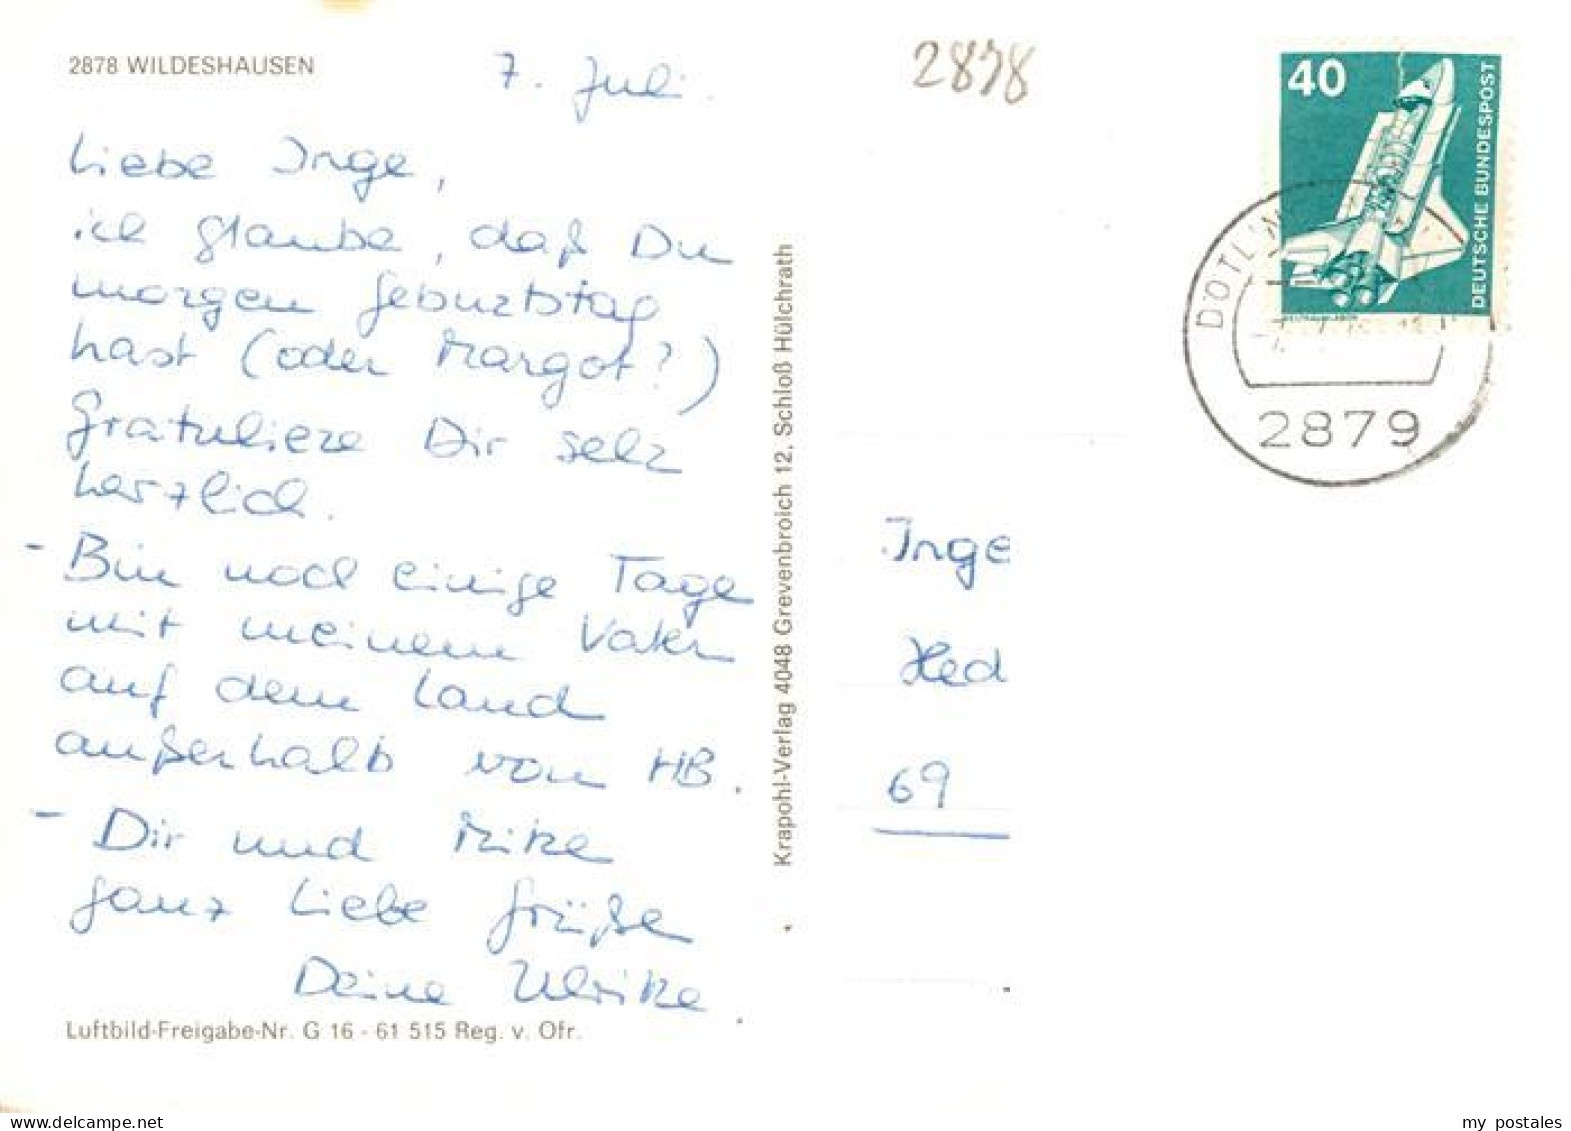 2878 WILDESHAUSEN
7. Juli.
2878
Liebe Inge,
ich glaube, daß Du
morgen Geburtstag
hast (oder Margot?)
Gratuliere Dir sehr
herzlich.
- Bin noch einige Tage
mit meinem Vater
auf dem Land
außerhalb von HB.
- Dir und Mike
ganz liebe Grüße
Deine Ulrike.
Luftbild-Freigabe-Nr. G 16 - 61 515 Reg. v. Ofr.
Krapohl-Verlag 4048 Grevenbroich 12, Schloß Hülchrath
40
DEUTSCHE BUNDESPOST
2879
Inge
Hed
69
my postales